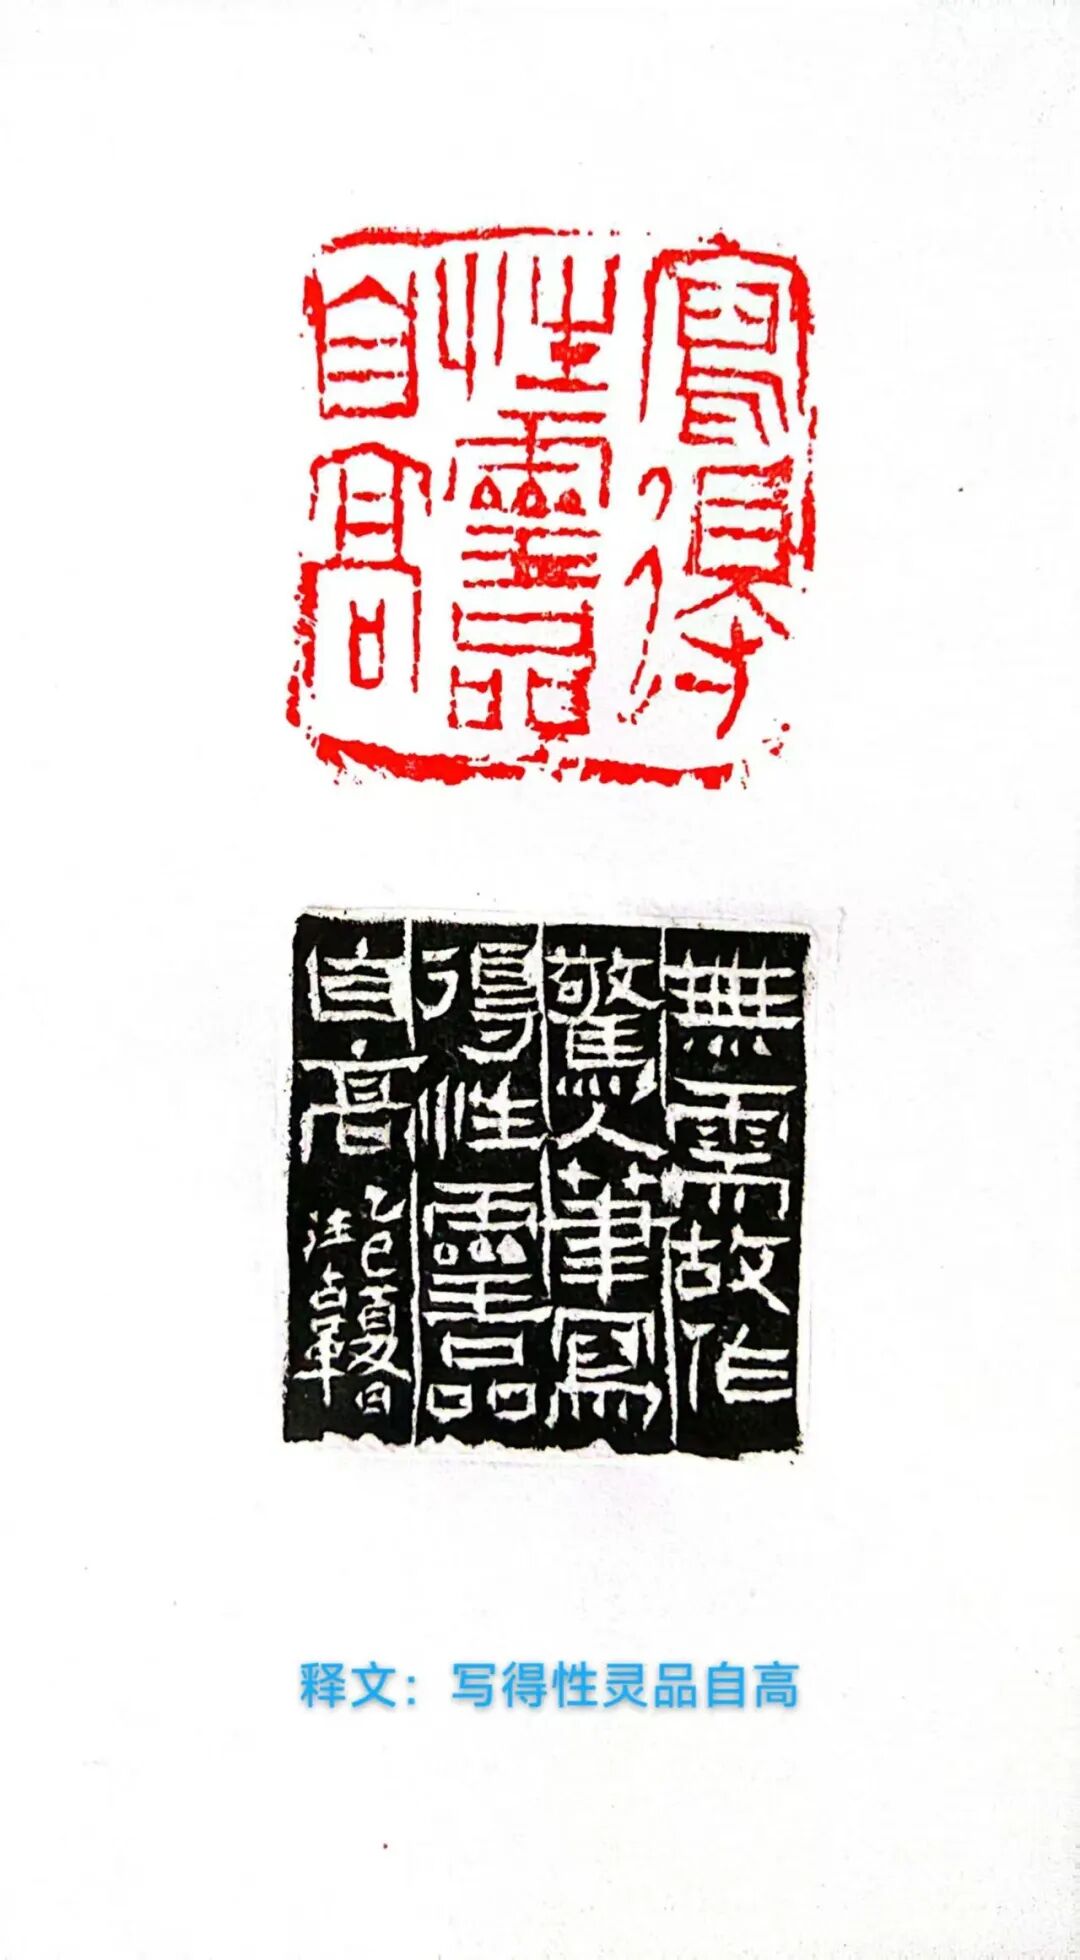 寫得
性靈品
自高
無需故作
驚人筆寫
得性靈品
自高
乙巳夏日
汪占革
释文：写得性灵品自高